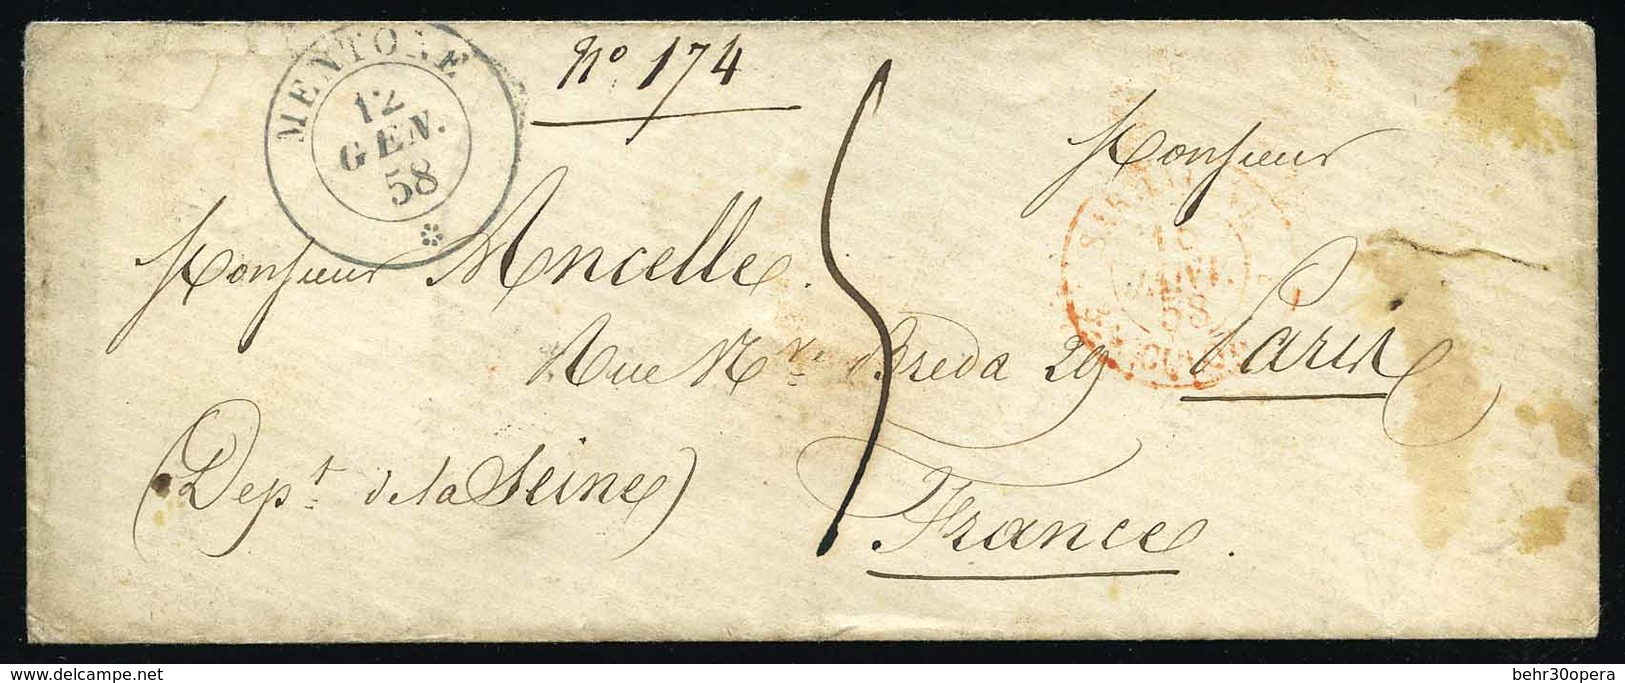 MENTONE
12
GEN.
58
No 174
Monsieur
Monsieur Moncelle.
Rue Nve Breda 29 Paris
(Dept de la Seine)
France.
5
JANV.
58
delcampe.net
behr30opera